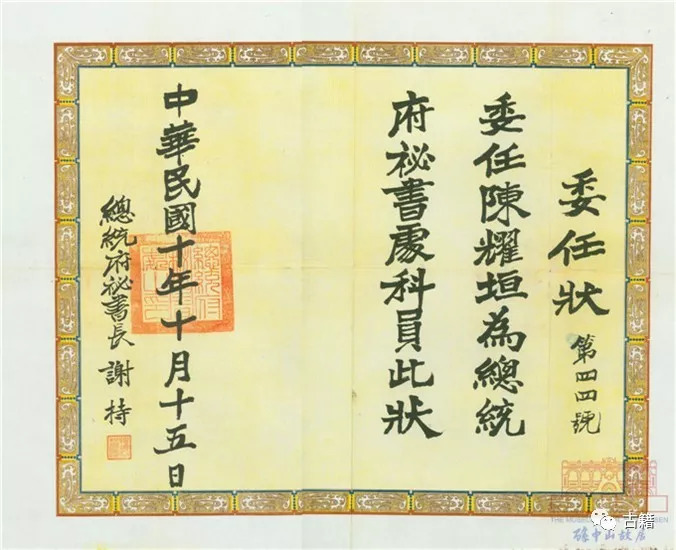 委任狀
第四四號
委任陳耀垣為總統
府祕書處科員此狀
中華民國十年十月十五日
總統府祕書長 謝持
THE MUSEUM
古籍
孫中山故居